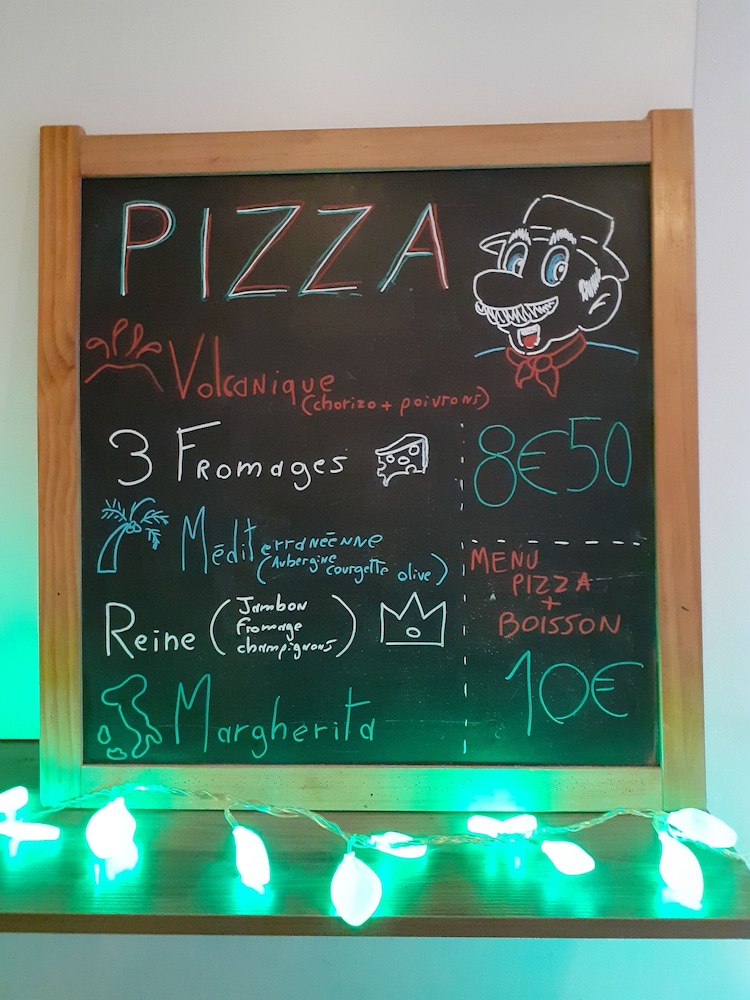 PIZZA
Volcanique
(chorizo + poivrons)
3 Fromages
8€50
Méditerranéenne
(Aubergine
courgette olive)
MENU
PIZZA
+
BOISSON
Reine (Jambon
fromage
champignons)
10€
Margherita